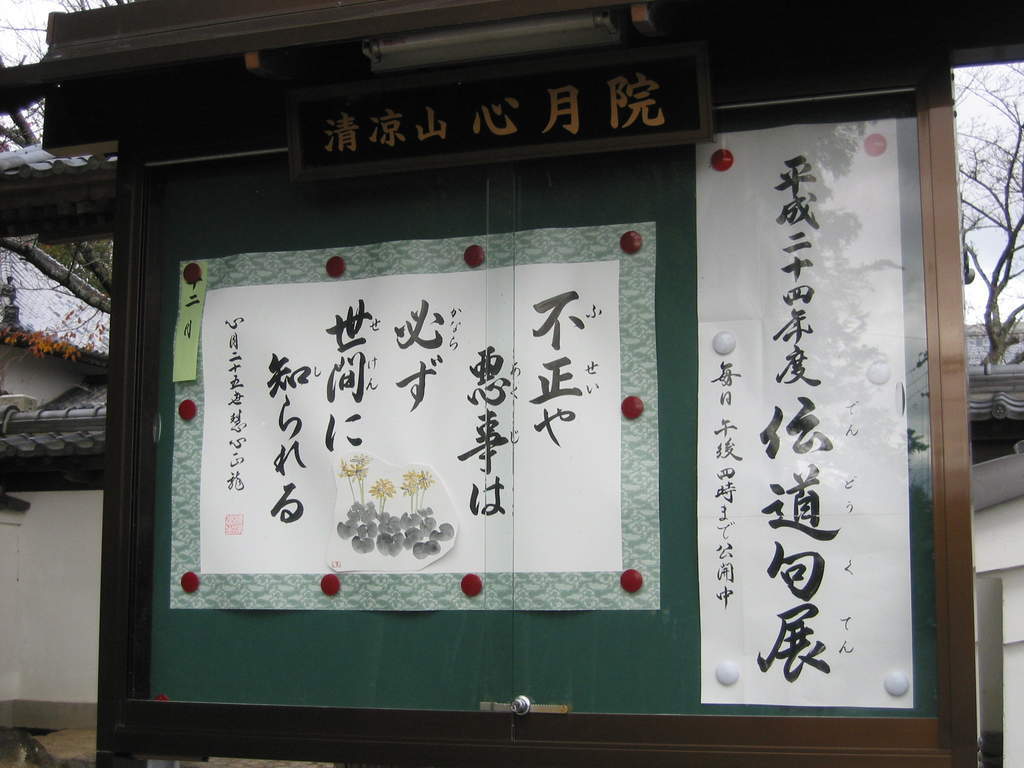 清凉山 心月院
平成二十四年度 伝道句展
でん どう く てん
毎日 午後四時まで公開中
不正や
ふ せい
悪事は
あく じ
必ず
かなら
世間に
せ けん
知られる
し
心月二十五世慧心正龍
十二月